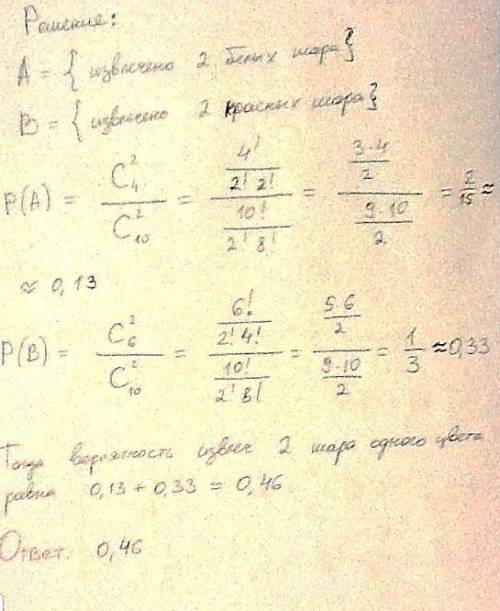 Решение:
A = { извлечено 2 белых шара}
B = { извлечено 2 красных шара}
P(A) = C₄² / C₁₀² = (4! / 2! 2!) / (10! / 2! 8!) = (3·4 / 2) / (9·10 / 2) = 2/15 ≈
≈ 0,13
P(B) = C₆² / C₁₀² = (6! / 2! 4!) / (10! / 2! 8!) = (5·6 / 2) / (9·10 / 2) = 1/3 ≈ 0,33
Тогда вероятность извлеч 2 шара одного цвета
равна 0,13 + 0,33 = 0,46
Ответ. 0,46